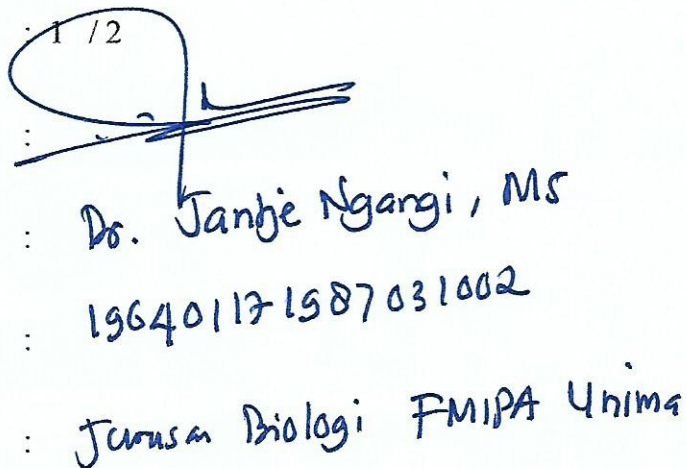 : 1 / 2
:
: Dr. Jantje Ngangi, MS
: 196401171987031002
: Jurusan Biologi FMIPA Unima